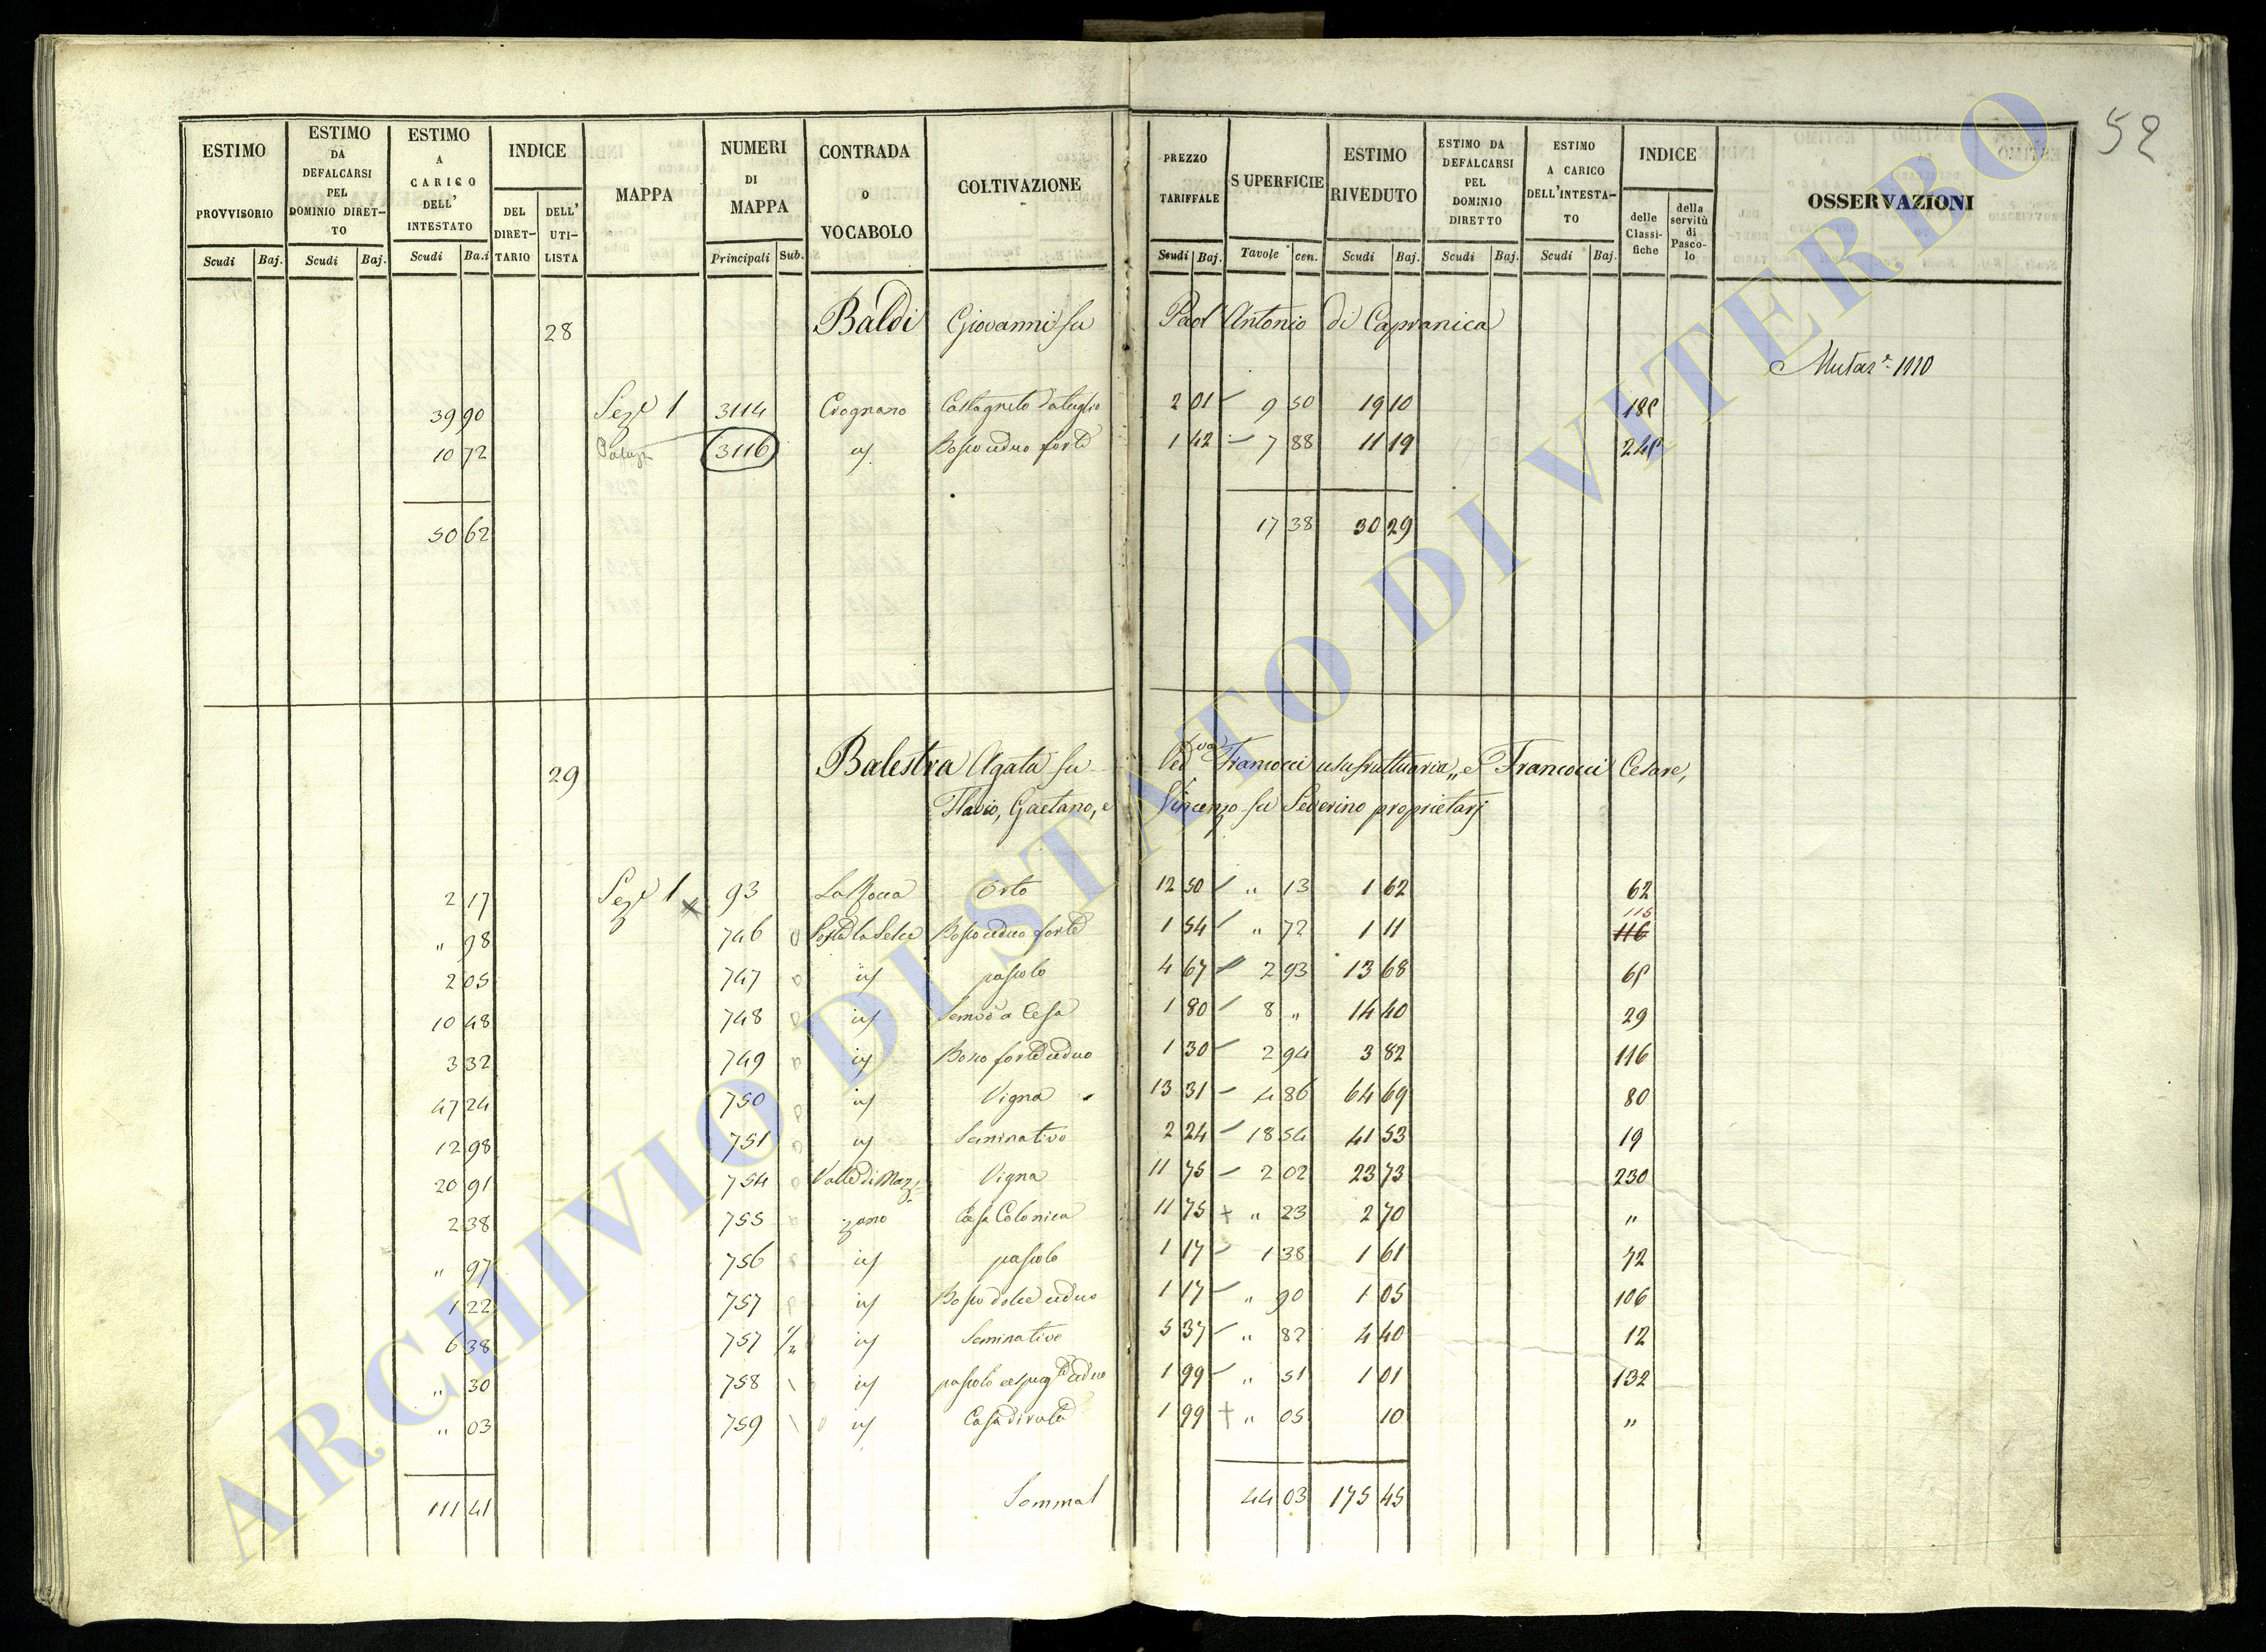 52
ESTIMO PROVVISORIO Scudi Baj.
ESTIMO DA DEFALCARSI PEL DOMINIO DIRET-TO Scudi Baj.
ESTIMO A CARICO DELL' INTESTATO Scudi Ba.i
INDICE DEL DIRET-TARIO DELL' UTI-LISTA
MAPPA
NUMERI DI MAPPA Principali Sub.
CONTRADA O VOCABOLO
COLTIVAZIONE
PREZZO TARIFFALE Scudi Baj.
SUPERFICIE Tavole cen.
ESTIMO RIVEDUTO Scudi Baj.
ESTIMO DA DEFALCARSI PEL DOMINIO DIRETTO Scudi Baj.
ESTIMO A CARICO DELL'INTESTA-TO Scudi Baj.
INDICE delle Classi-fiche della servitù di Pasco-lo
OSSERVAZIONI
28 Baldi Giovanni fu Paol' Antonio di Capranica
Mutaz.e 1110
39 90 Sez.e 1 3114 Castagneto 2 01 9 50 19 10
10 72 3116 Bosco ceduo forte 1 42 7 88 11 19
50 62 17 38 30 29
29 Balestra Agata fu Ved.va Francocci usufruttuaria,, e Francocci Cesare,
Flavio, Gaetano, e Vincenzo fu Severino proprietarj
2 17 Sez.e 1 93 La Rocca Orto 12 50 " 13 1 62 62
115
" 98 746 Bosco ceduo forte 1 54 " 72 1 11 116
2 05 747 pascolo 4 67 2 93 13 68
10 48 748 1 80 8 " 14 40 29
3 32 749 Bosco forte ceduo 1 30 2 94 3 82 116
47 24 750 Vigna 13 31 4 86 64 69 80
12 98 751 Seminativo 2 24 18 54 41 53 19
20 91 754 Valle di Maz- Vigna 11 75 2 02 23 73 230
2 38 755 zano Casa Colonica 11 75 " 23 2 70 "
" 97 756 pascolo 1 17 1 38 1 61 72
1 22 757 Bosco dolce ceduo 1 17 " 90 1 05 106
6 38 757 1/2 Seminativo 5 37 " 82 4 40 12
" 30 758 pascolo 1 99 " 51 1 01 132
" 03 759 Casa diruta 1 99 " 05 10 "
111 41 44 03 175 45
ARCHIVIO DI STATO DI VITERBO